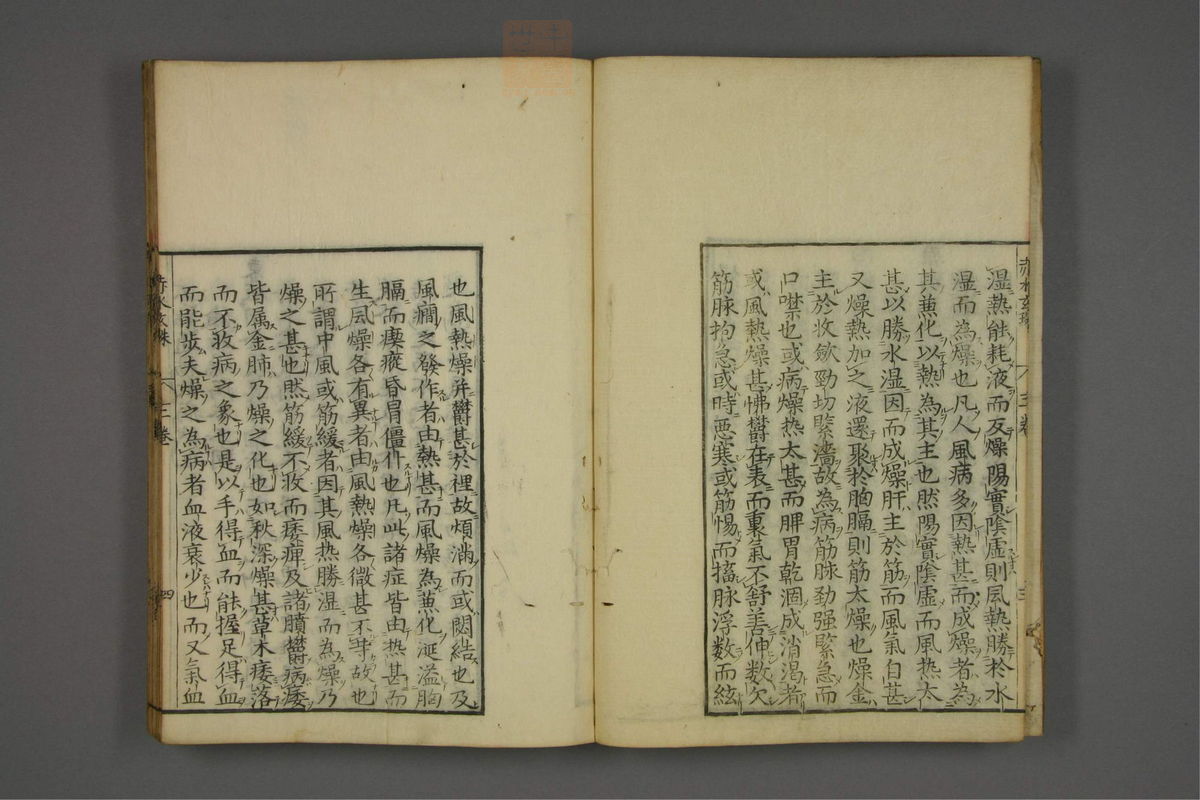 湿熱能耗液而反燥陽實陰虛則风熱勝於水
湿而為燥也凡人風病多因熱甚而成燥者為
其兼化以熱為其主也然陽實陰虛而風热太
甚以勝水湿因而成燥肝主於筋而風氣自甚
又燥熱加之液還聚於胸膈則筋太燥也燥金
主於收歛勁切緊濇故為病筋脉劲强緊急而
口噤也或病燥热太甚而脾胃乾涸成消渴者
或風熱燥甚怫鬱在表而裏氣不舒善伸数欠
筋脉拘急或時悪寒或筋惕而搐脉浮数而絃
赤水玄珠 三卷 三
也風熱燥并鬱甚於裡故煩滿而或悶結也及
風癇之發作者由熱甚而風燥為兼化涎溢胸
膈而瘈瘲昏冒僵仆也凡此諸症皆由热甚而
生风燥各有異者由風熱燥各微甚不等故也
所謂中風或筋緩者因其風热勝湿而為燥乃
燥之甚也然筋緩不收而痿痺及諸膹鬱病痿
皆属金肺乃燥之化也如秋深燥甚草木痿落
而不收病之象也是以手得血而能握足得血
而能步夫燥之為病者血液衰少也而又氣血
赤水玄珠 三卷 四